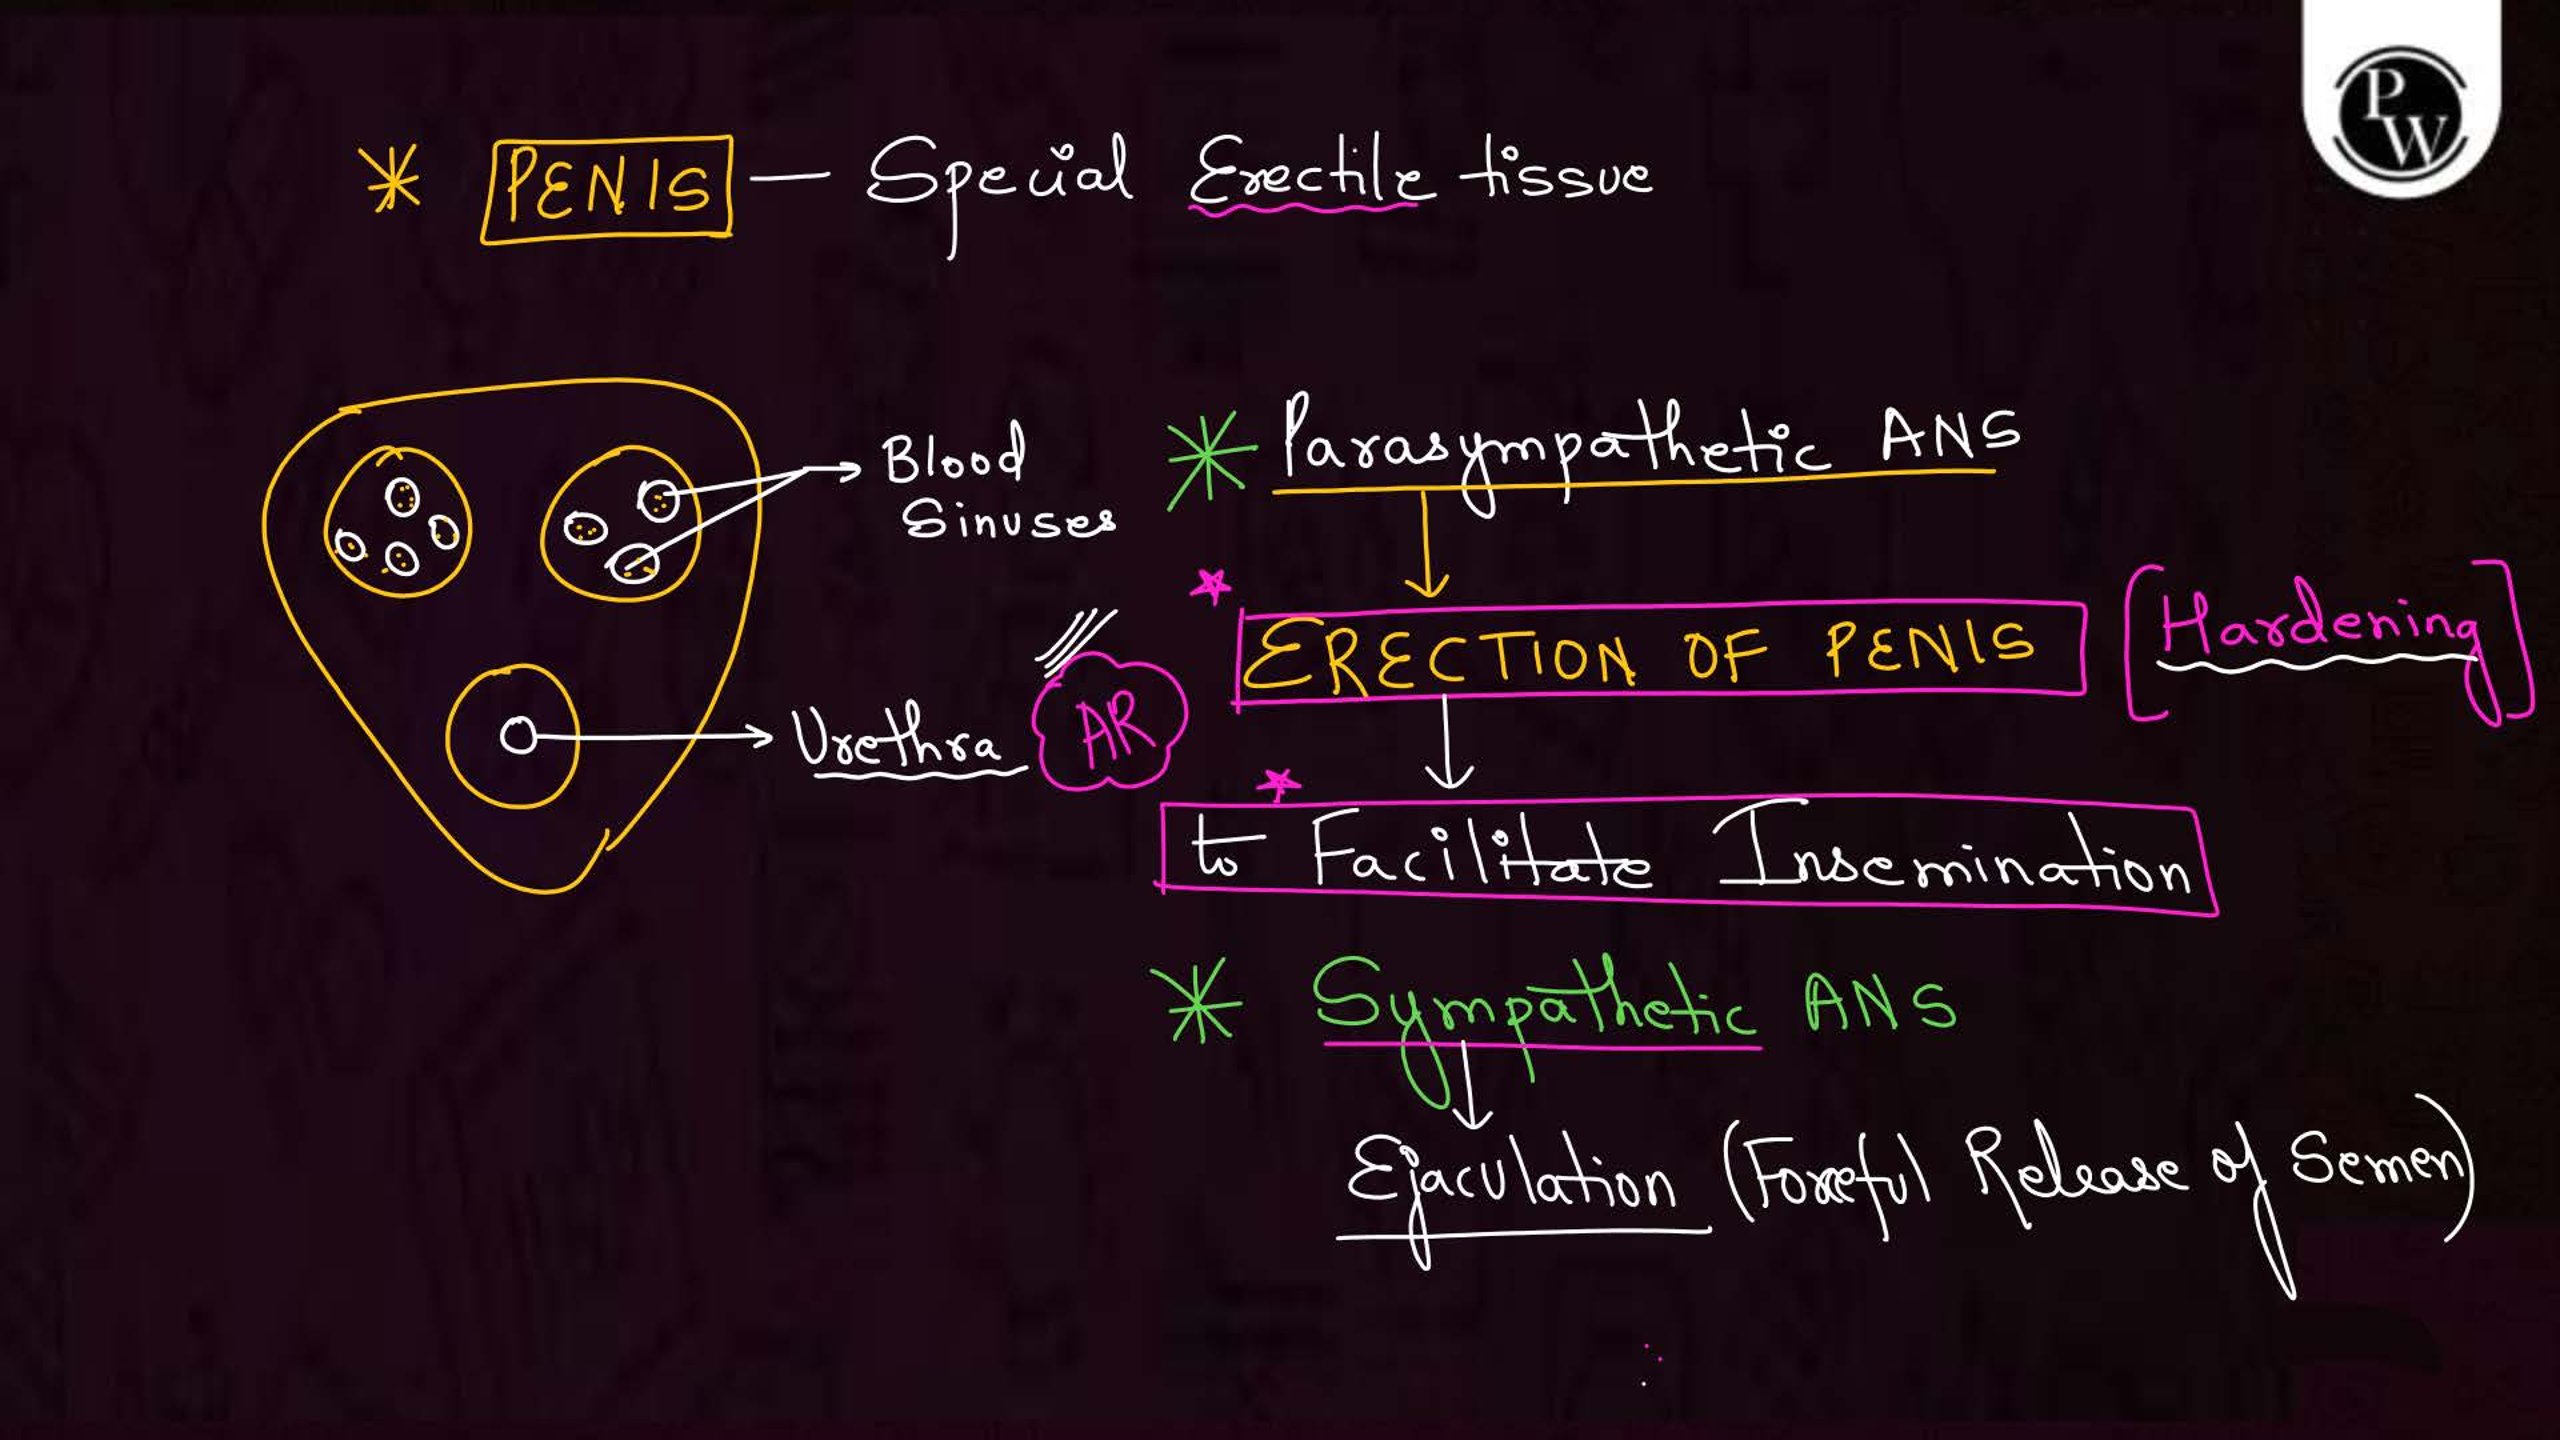 PW
* PENIS — Special Erectile tissue
Blood
Sinuses
Urethra
* Parasympathetic ANS
ERECTION OF PENIS [Hardening]
AR
to Facilitate Insemination
* Sympathetic ANS
Ejaculation (Forceful Release of Semen)